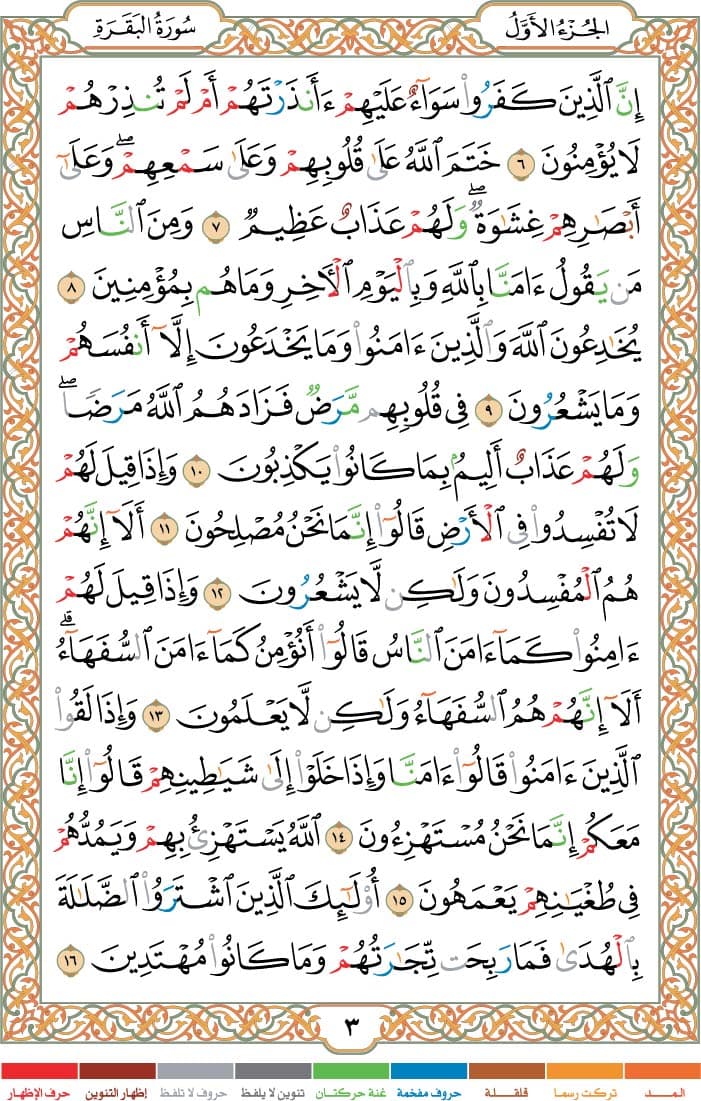 الجُزْءُ الأَوَّلُ
سُورَةُ البَقَرَةِ
إِنَّ ٱلَّذِينَ كَفَرُوا۟ سَوَآءٌ عَلَيْهِمْ ءَأَنذَرْتَهُمْ أَمْ لَمْ تُنذِرْهُمْ
لَا يُؤْمِنُونَ ٦ خَتَمَ ٱللَّهُ عَلَىٰ قُلُوبِهِمْ وَعَلَىٰ سَمْعِهِمْ ۖ وَعَلَىٰٓ
أَبْصَـٰرِهِمْ غِشَـٰوَةٌ ۖ وَلَهُمْ عَذَابٌ عَظِيمٌ ٧ وَمِنَ ٱلنَّاسِ
مَن يَقُولُ ءَامَنَّا بِٱللَّهِ وَبِٱلْيَوْمِ ٱلْـَٔاخِرِ وَمَا هُم بِمُؤْمِنِينَ ٨
يُخَـٰدِعُونَ ٱللَّهَ وَٱلَّذِينَ ءَامَنُوا۟ وَمَا يَخْدَعُونَ إِلَّآ أَنفُسَهُمْ
وَمَا يَشْعُرُونَ ٩ فِى قُلُوبِهِم مَّرَضٌ فَزَادَهُمُ ٱللَّهُ مَرَضًا ۖ
وَلَهُمْ عَذَابٌ أَلِيمٌۢ بِمَا كَانُوا۟ يَكْذِبُونَ ١٠ وَإِذَا قِيلَ لَهُمْ
لَا تُفْسِدُوا۟ فِى ٱلْأَرْضِ قَالُوٓا۟ إِنَّمَا نَحْنُ مُصْلِحُونَ ١١ أَلَآ إِنَّهُمْ
هُمُ ٱلْمُفْسِدُونَ وَلَـٰكِن لَّا يَشْعُرُونَ ١٢ وَإِذَا قِيلَ لَهُمْ
ءَامِنُوا۟ كَمَآ ءَامَنَ ٱلنَّاسُ قَالُوٓا۟ أَنُؤْمِنُ كَمَآ ءَامَنَ ٱلسُّفَهَآءُ ۗ
أَلَآ إِنَّهُمْ هُمُ ٱلسُّفَهَآءُ وَلَـٰكِن لَّا يَعْلَمُونَ ١٣ وَإِذَا لَقُوا۟
ٱلَّذِينَ ءَامَنُوا۟ قَالُوٓا۟ ءَامَنَّا وَإِذَا خَلَوْا۟ إِلَىٰ شَيَـٰطِينِهِمْ قَالُوٓا۟ إِنَّا
مَعَكُمْ إِنَّمَا نَحْنُ مُسْتَهْزِءُونَ ١٤ ٱللَّهُ يَسْتَهْزِئُ بِهِمْ وَيَمُدُّهُمْ
فِى طُغْيَـٰنِهِمْ يَعْمَهُونَ ١٥ أُو۟لَـٰٓئِكَ ٱلَّذِينَ ٱشْتَرَوُا۟ ٱلضَّلَـٰلَةَ
بِٱلْهُدَىٰ فَمَا رَبِحَت تِّجَـٰرَتُهُمْ وَمَا كَانُوا۟ مُهْتَدِينَ ١٦
٣
المـــد
تركت رسما
قلقـلـة
حروف مفخمة
غنة حركتـان
تنوين لا يلفظ
حروف لا تلفظ
إظهار التنوين
حرف الإظهار